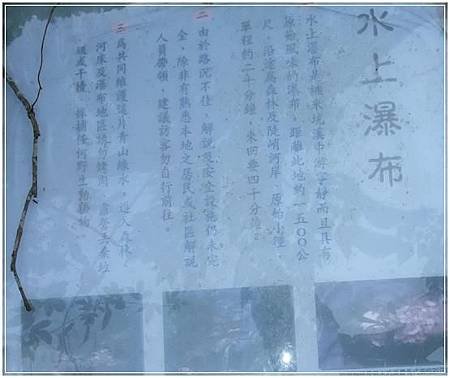 水上瀑布
水上瀑布是桃米坑溪中游寧靜而且具有
原始風味的瀑布，距離此地約一五〇〇公
尺，沿途為森林及陡峭河岸、原始小徑，
單程約二十分鐘，來回要四十分鐘。
二 由於路況不佳，解說及安全設施仍未完
全，除非有熟悉本地之居民或社區解說
人員帶領，建議訪客勿自行前往。
三 為共同維護這片青山綠水，進入森林、
河床及瀑布地區請勿烤肉、露營、丟棄垃
圾或干擾、採捕任何野生動植物。